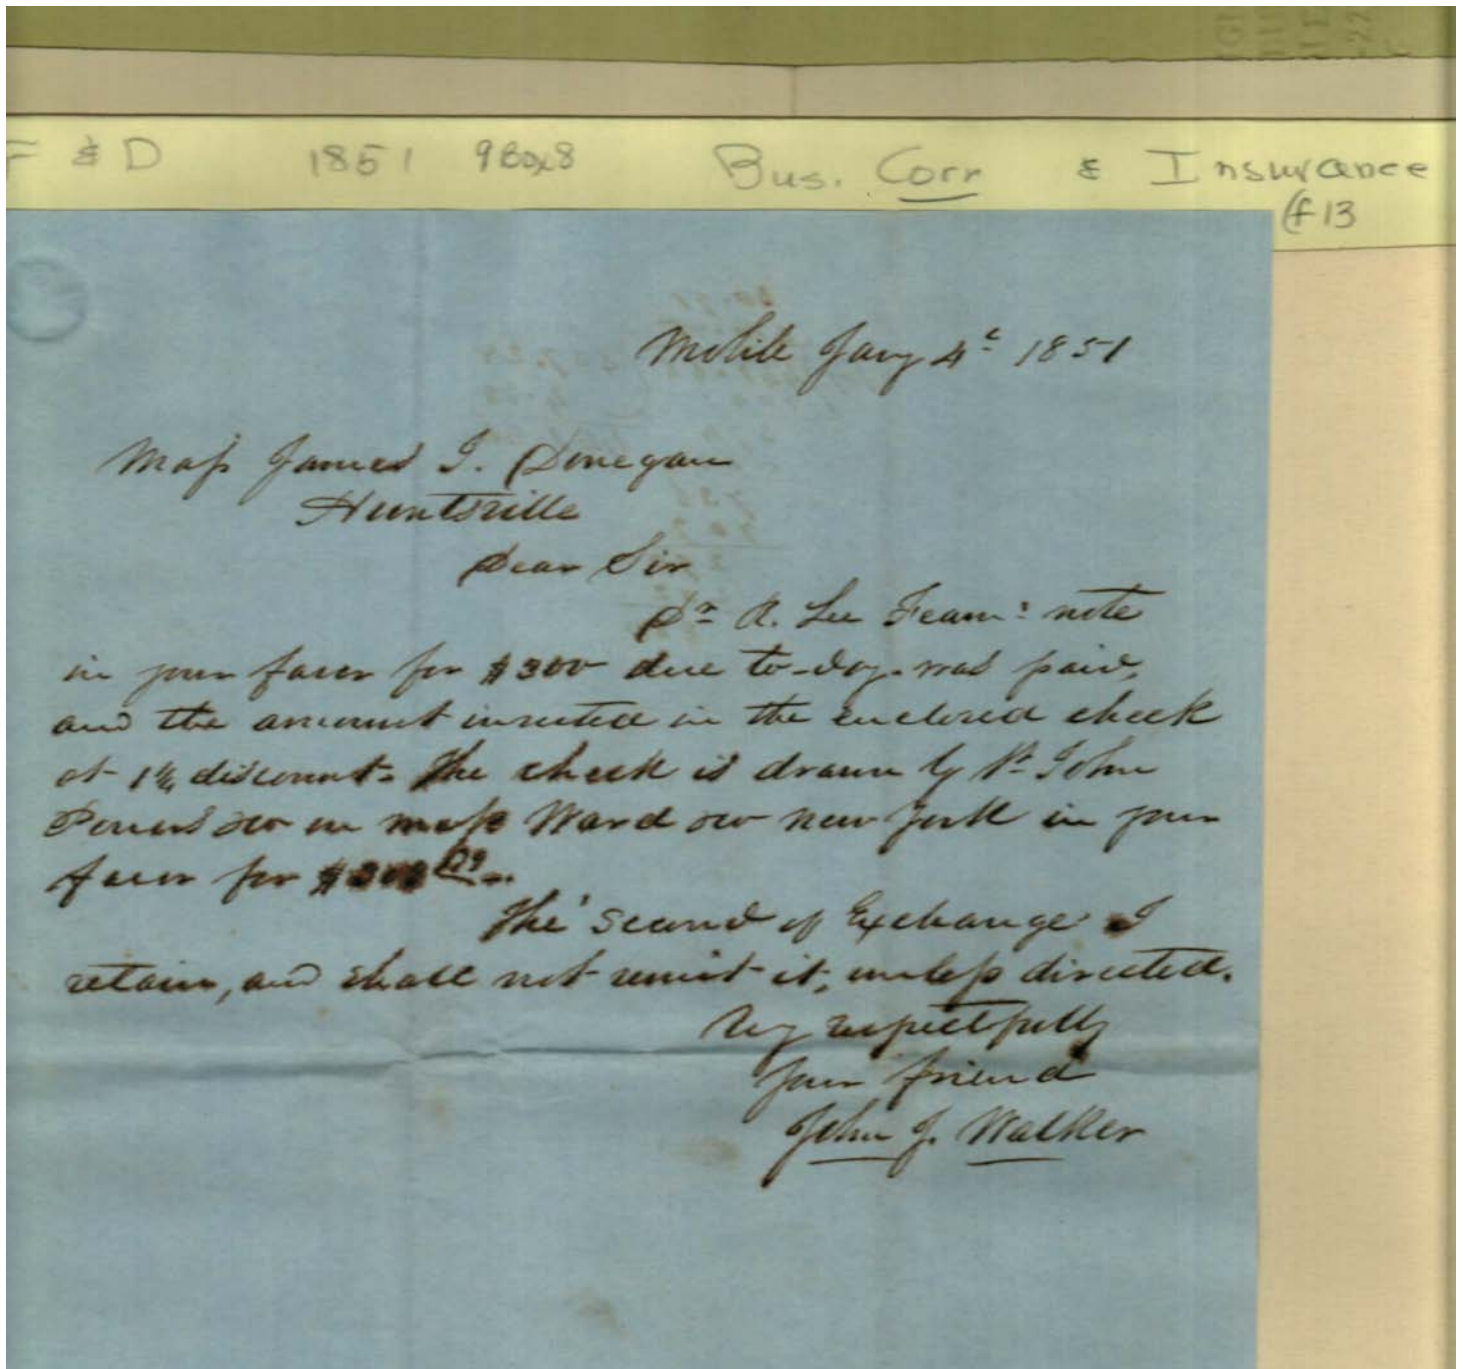 F & D 1851 9Box8 Bus. Corr & Insurance
(f 13
Mobile Jany 4th 1851
Mess James J. Donegan
Huntsville
Dear Sir
Dr A. Lee Fearn: note
in your favor for $300 due to-day was paid,
and the amount invested in the enclosed check
at discount. The check is drawn by St John
Powers &co on Mess Ward &co New York in your
favor for
The second of Exchange I
retain, and shall not remit it, unless directed.
Very respectfully
Your friend
John J. Walker